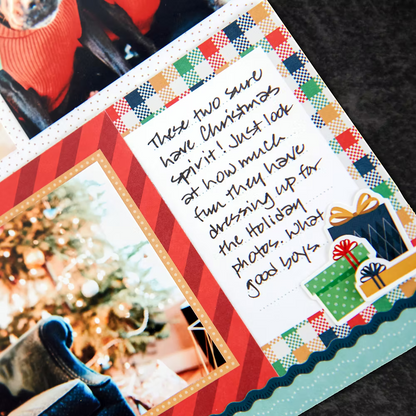 These two sure
have Christmas
spirit! Just look
at how much
fun they have
dressing up for
the Holiday
photos. What
good boys